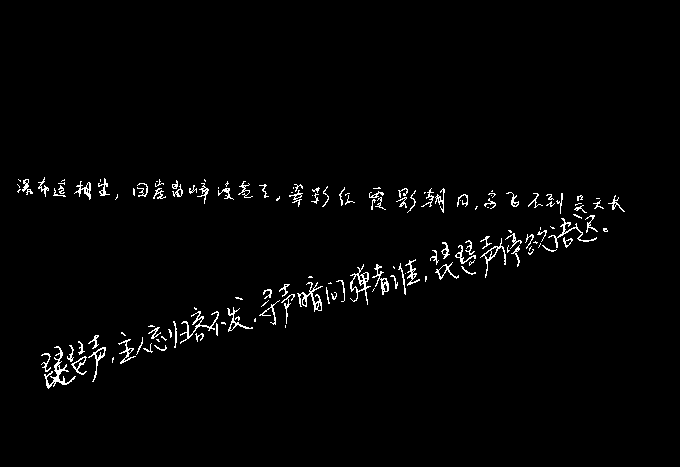 瀑布遥相望，回崖沓嶂凌苍苍。翠影红霞影朝日，鸟飞不到吴天长
琵琶声，主人忘归客不发，寻声暗问弹者谁，琵琶声停欲语迟。